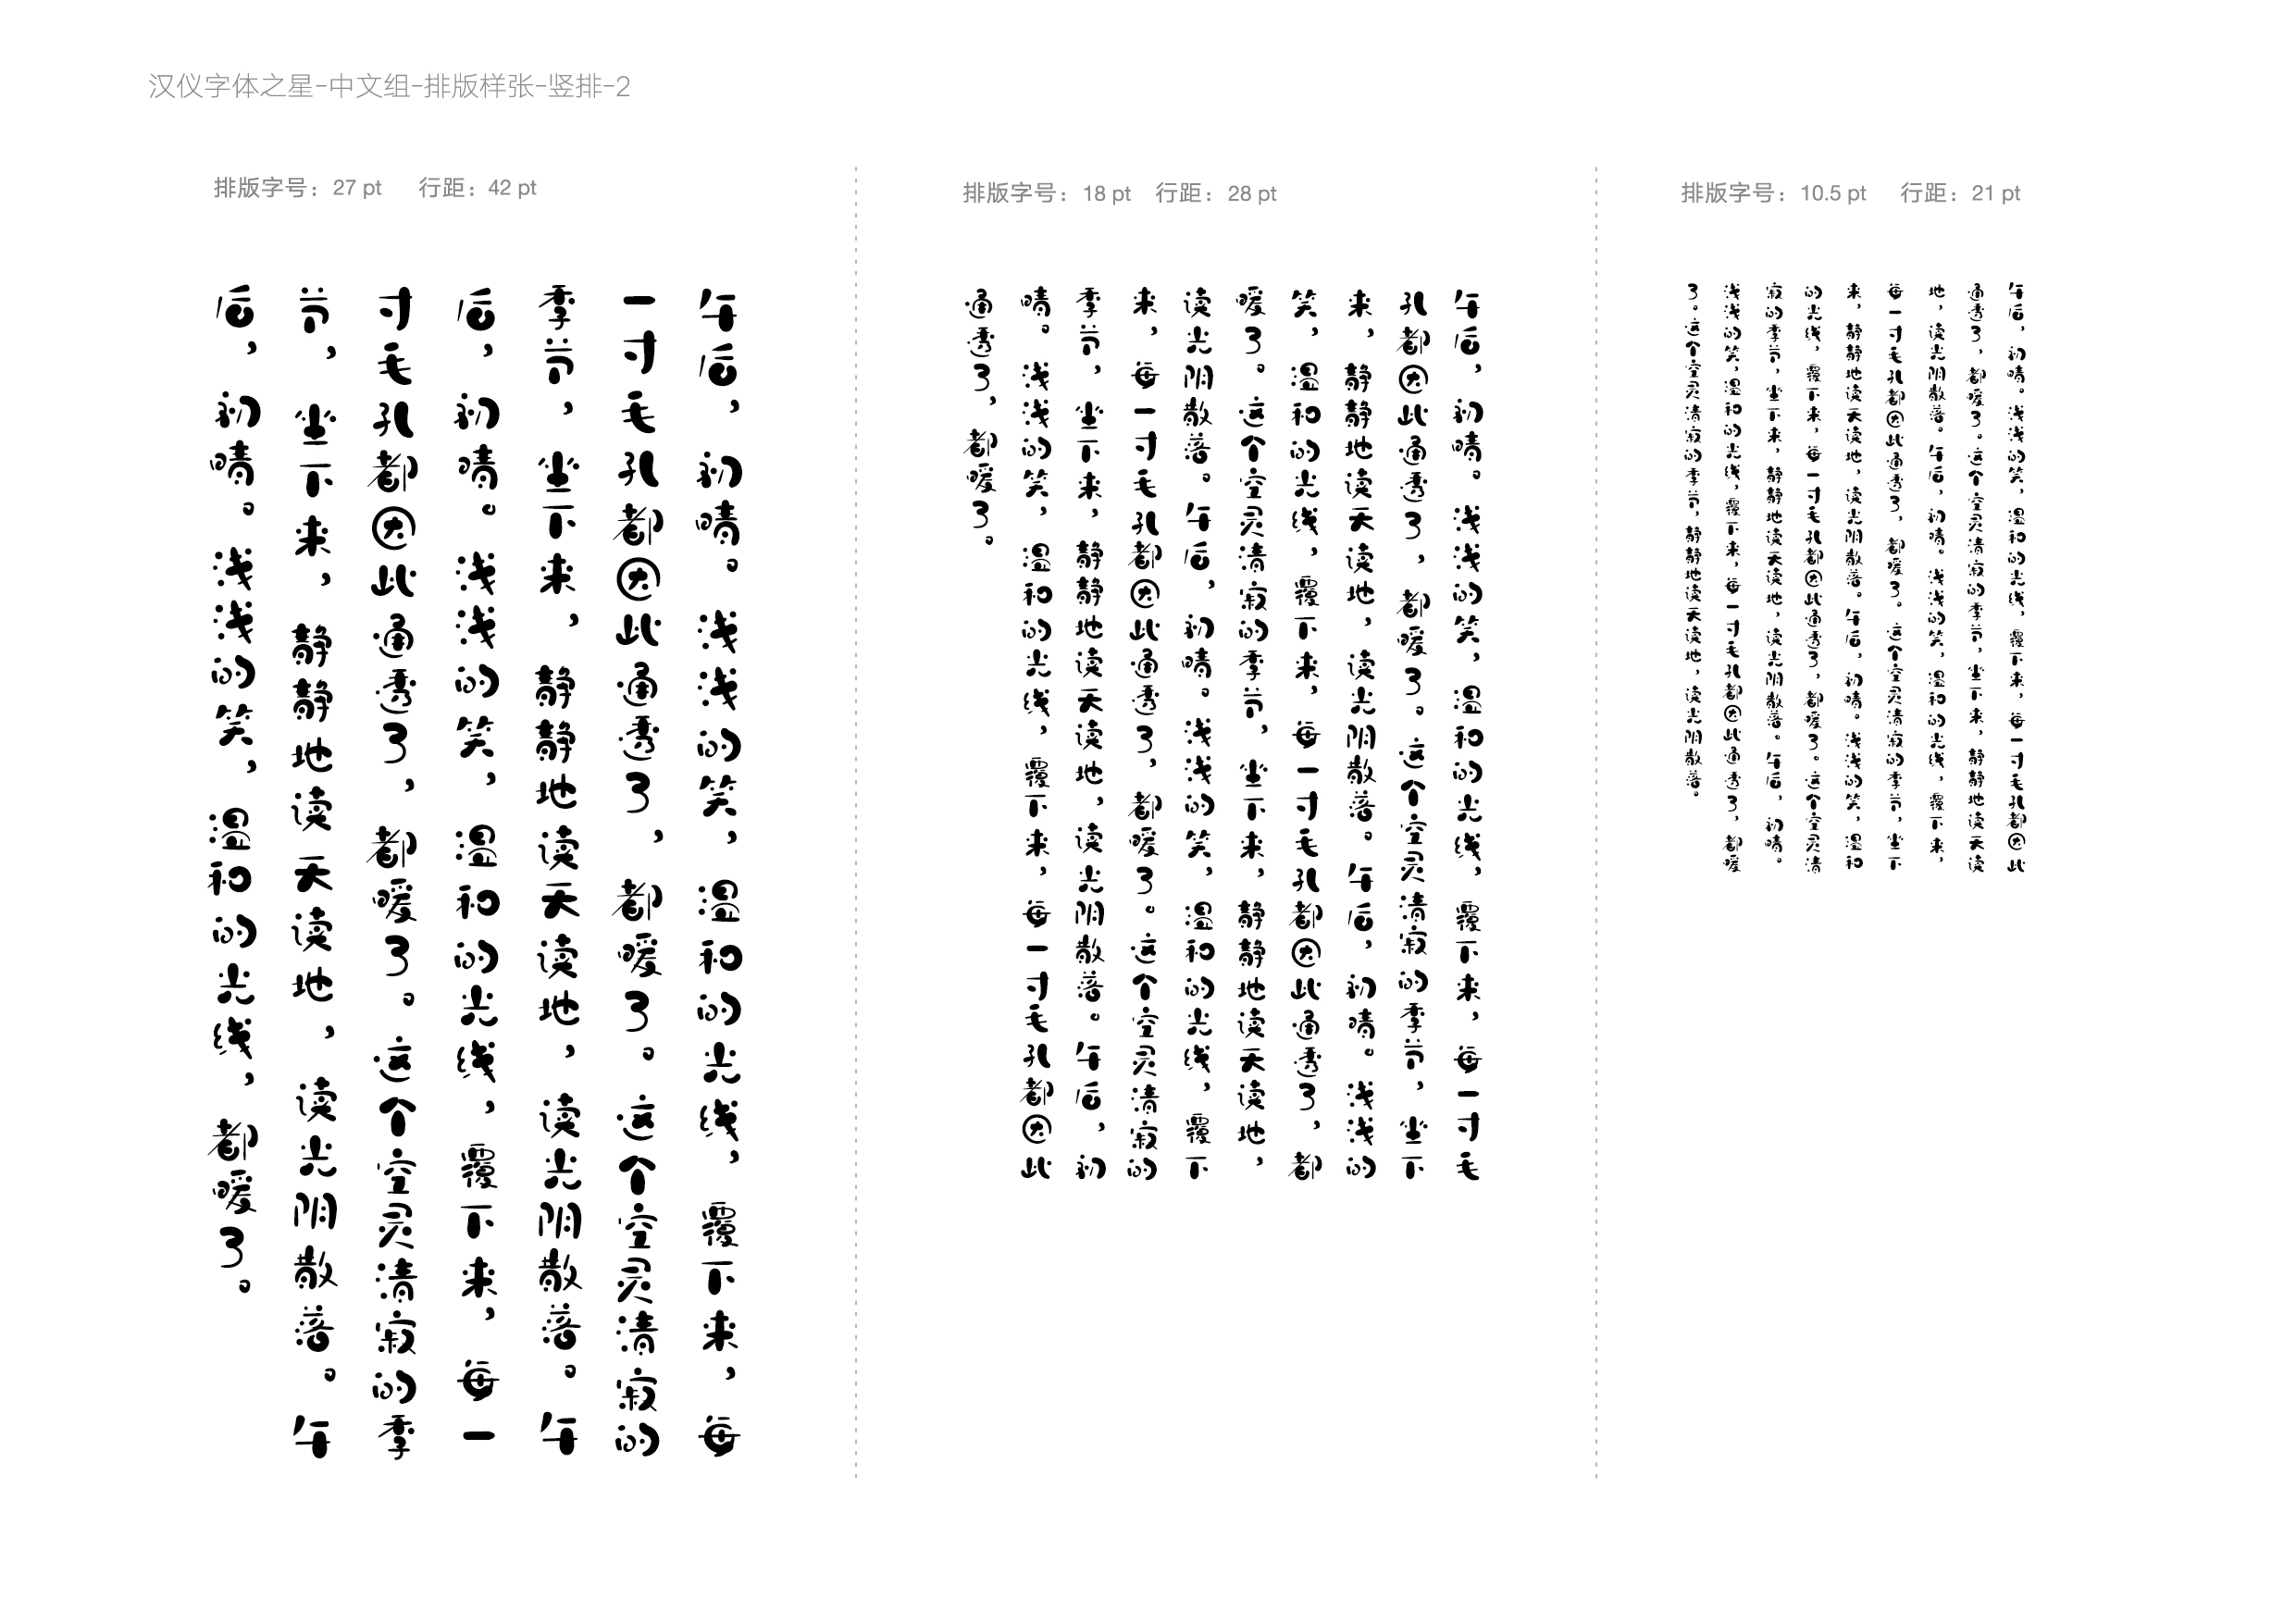 汉仪字体之星-中文组-排版样张-竖排-2
排版字号：27 pt　行距：42 pt
午后，初晴。浅浅的笑，温和的光线，覆下来，每
一寸毛孔都因此通透了，都暖了。这个空灵清寂的
季节，坐下来，静静地读天读地，读光阴散落。午
后，初晴。浅浅的笑，温和的光线，覆下来，每一
寸毛孔都因此通透了，都暖了。这个空灵清寂的季
节，坐下来，静静地读天读地，读光阴散落。午
后，初晴。浅浅的笑，温和的光线，都暖了。
排版字号：18 pt　行距：28 pt
午后，初晴。浅浅的笑，温和的光线，覆下来，每一寸毛
孔都因此通透了，都暖了。这个空灵清寂的季节，坐下
来，静静地读天读地，读光阴散落。午后，初晴。浅浅的
笑，温和的光线，覆下来，每一寸毛孔都因此通透了，都
暖了。这个空灵清寂的季节，坐下来，静静地读天读地，
读光阴散落。午后，初晴。浅浅的笑，温和的光线，覆下
来，每一寸毛孔都因此通透了，都暖了。这个空灵清寂的
季节，坐下来，静静地读天读地，读光阴散落。午后，初
晴。浅浅的笑，温和的光线，覆下来，每一寸毛孔都因此
通透了，都暖了。
排版字号：10.5 pt　行距：21 pt
午后，初晴。浅浅的笑，温和的光线，覆下来，每一寸毛孔都因此
通透了，都暖了。这个空灵清寂的季节，坐下来，静静地读天读
地，读光阴散落。午后，初晴。浅浅的笑，温和的光线，覆下来，
每一寸毛孔都因此通透了，都暖了。这个空灵清寂的季节，坐下
来，静静地读天读地，读光阴散落。午后，初晴。浅浅的笑，温和
的光线，覆下来，每一寸毛孔都因此通透了，都暖了。这个空灵清
寂的季节，坐下来，静静地读天读地，读光阴散落。午后，初晴。
浅浅的笑，温和的光线，覆下来，每一寸毛孔都因此通透了，都暖
了。这个空灵清寂的季节，静静地读天读地，读光阴散落。